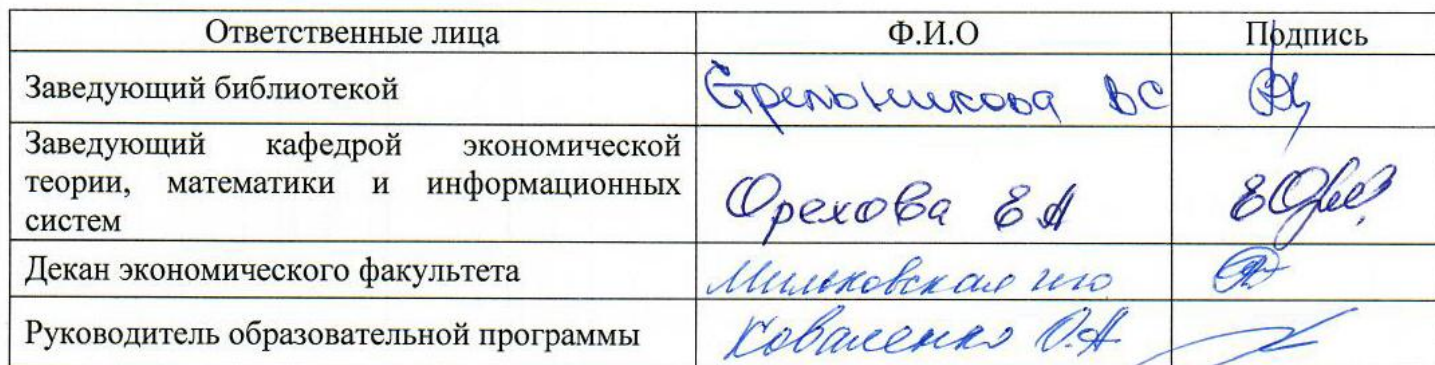 Ответственные лица Ф.И.О Подпись
Заведующий библиотекой Стрельникова ВС
Заведующий кафедрой экономической
теории, математики и информационных
систем Орехова ЕА
Декан экономического факультета Мильковская
Руководитель образовательной программы Коваленко О.А.